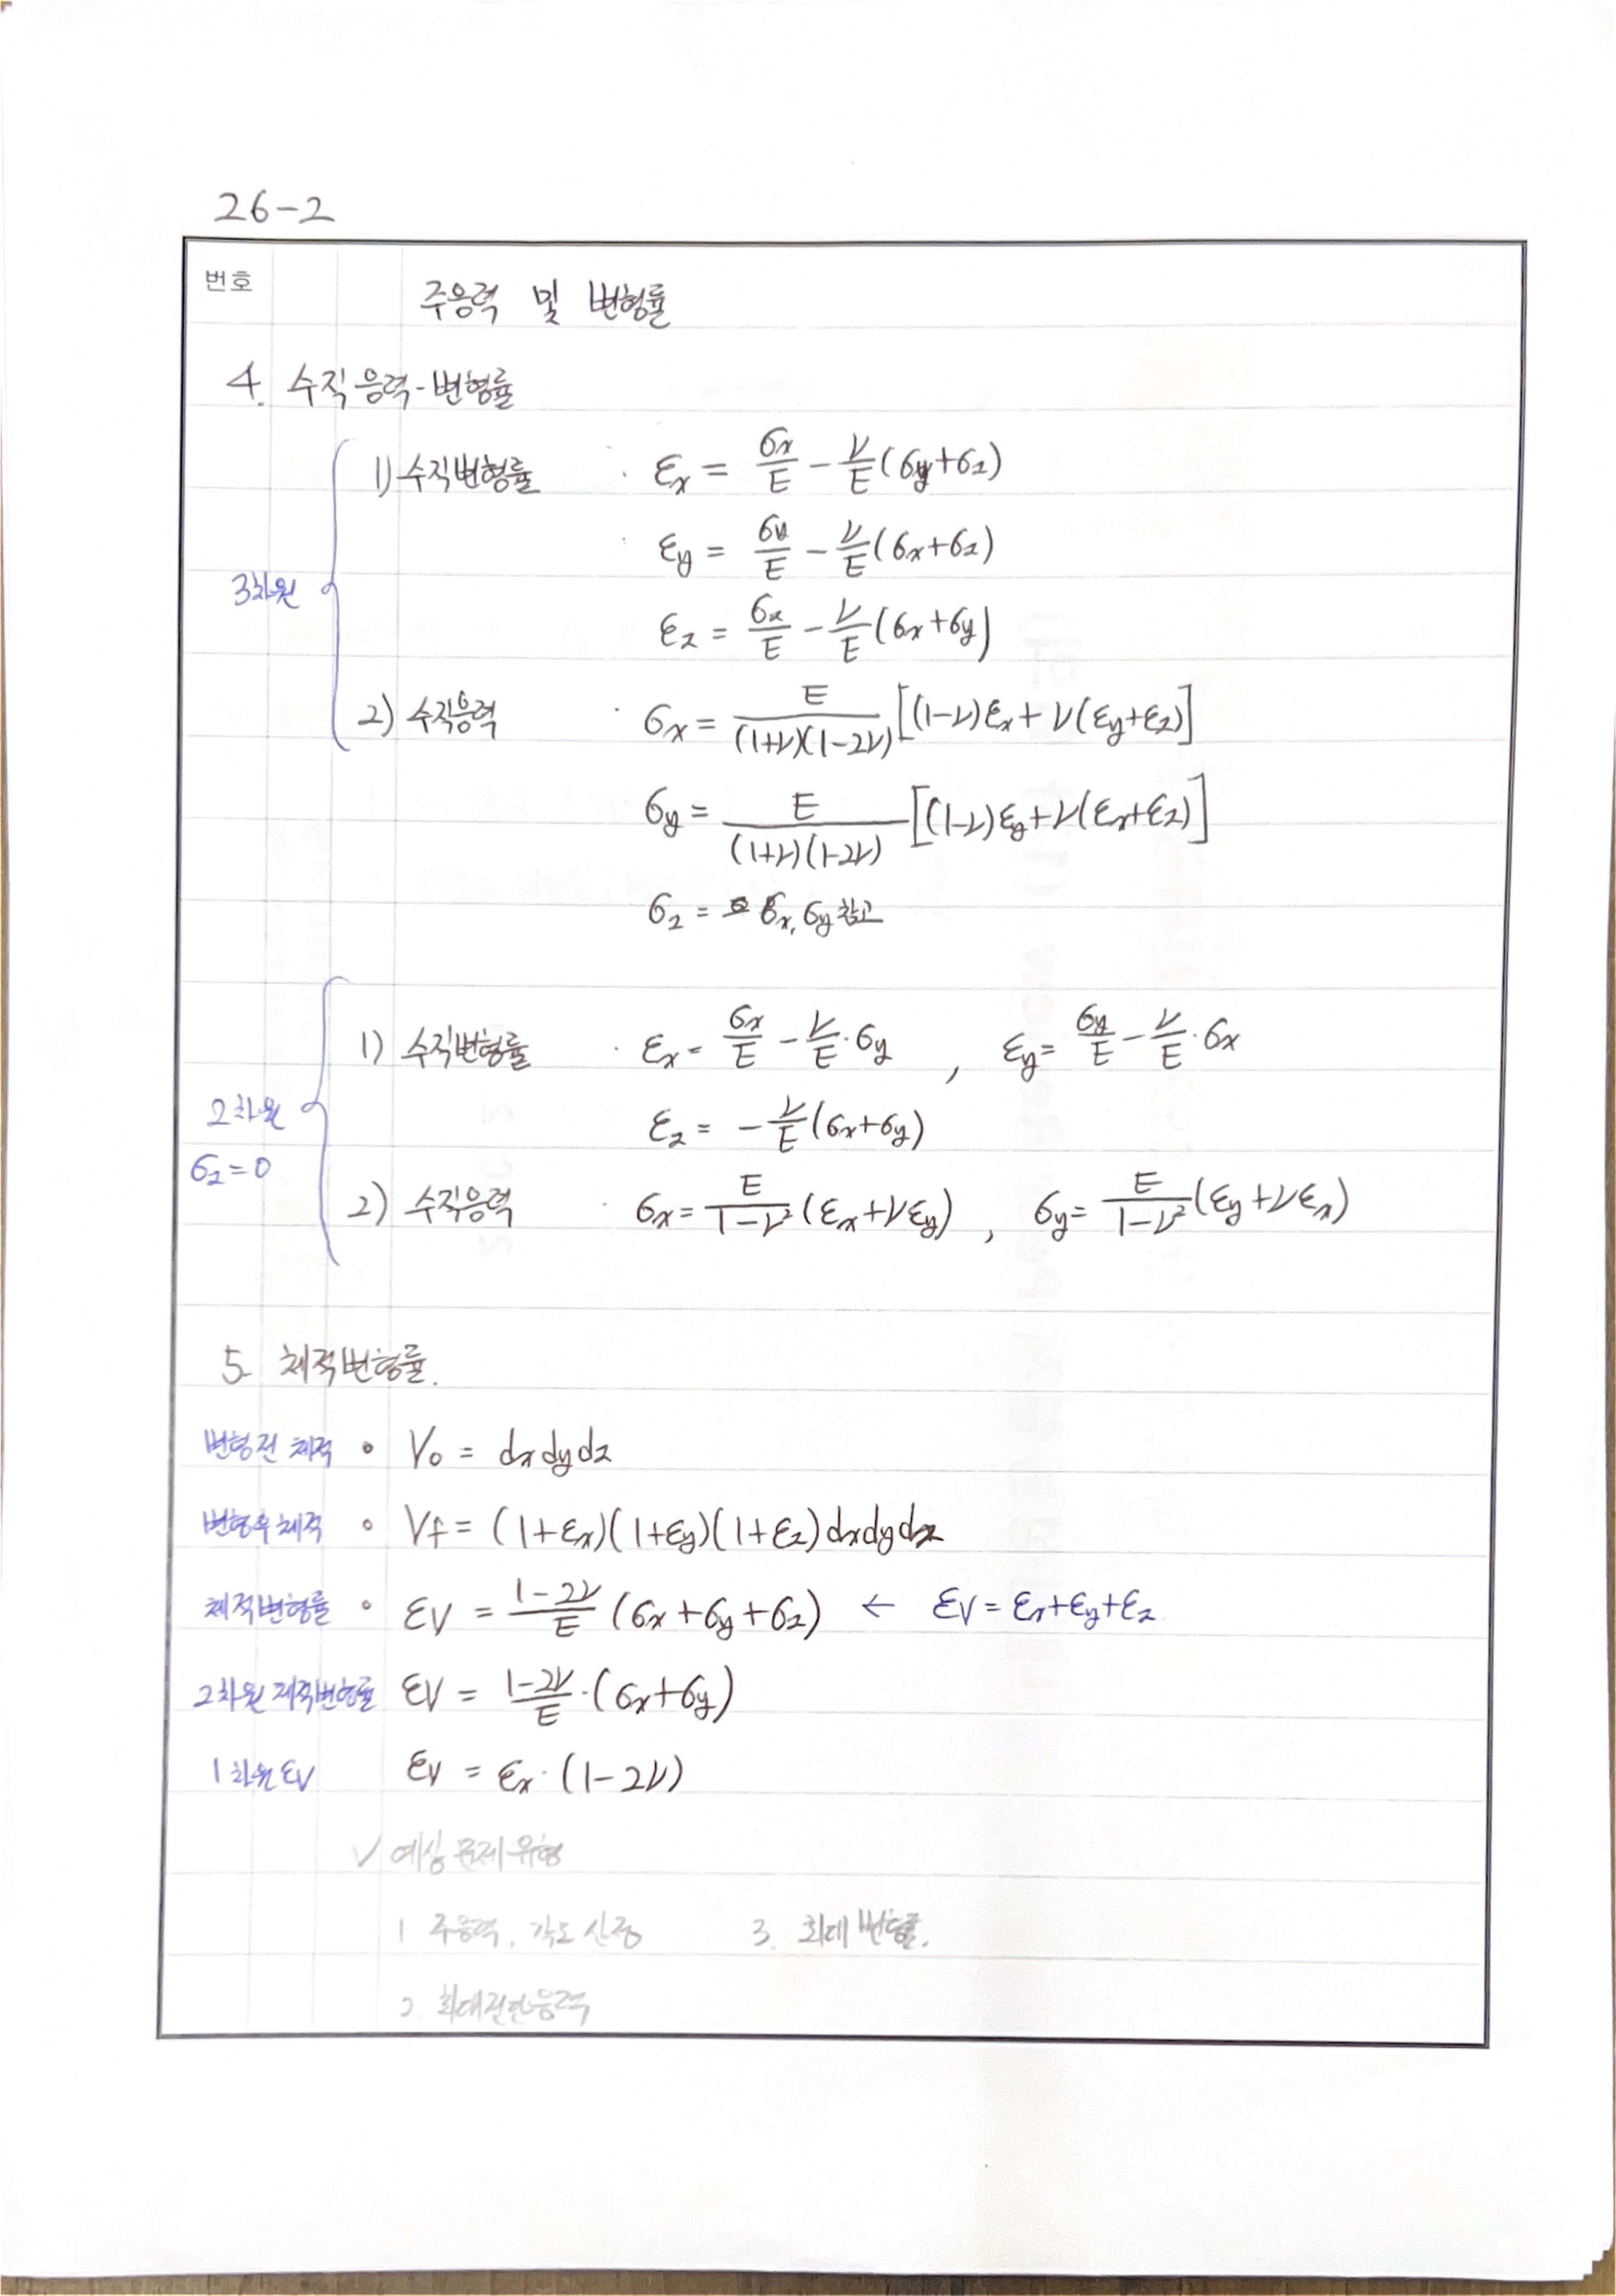 26-2
번호
주응력 및 변형률
4. 수직응력-변형률
3차원
1) 수직변형률 · εx = σx/E - ν/E(σy+σz)
· εy = σy/E - ν/E(σx+σz)
εz = σz/E - ν/E(σx+σy)
2) 수직응력 · σx = E/(1+ν)(1-2ν) [(1-ν)εx + ν(εy+εz)]
σy = E/(1+ν)(1-2ν) [(1-ν)εy + ν(εx+εz)]
σz = σx, σy 참고
2차원
σz=0
1) 수직변형률 · εx = σx/E - ν/E·σy , εy = σy/E - ν/E·σx
εz = - ν/E(σx+σy)
2) 수직응력 · σx = E/1-ν² (εx+νεy) , σy = E/1-ν² (εy+νεx)
5. 체적변형률.
변형전 체적 • V₀ = dxdydz
변형후 체적 ∘ Vf = (1+εx)(1+εy)(1+εz)dxdydz
체적변형률 ∘ εV = 1-2ν/E (σx+σy+σz) ← εV = εx+εy+εz
2차원 체적변형률 εV = 1-2ν/E·(σx+σy)
1차원 εV εV = εx·(1-2ν)
√ 예상 문제 유형
1 주응력, 각도 산정 3. 최대 변형률.
2. 최대전단응력